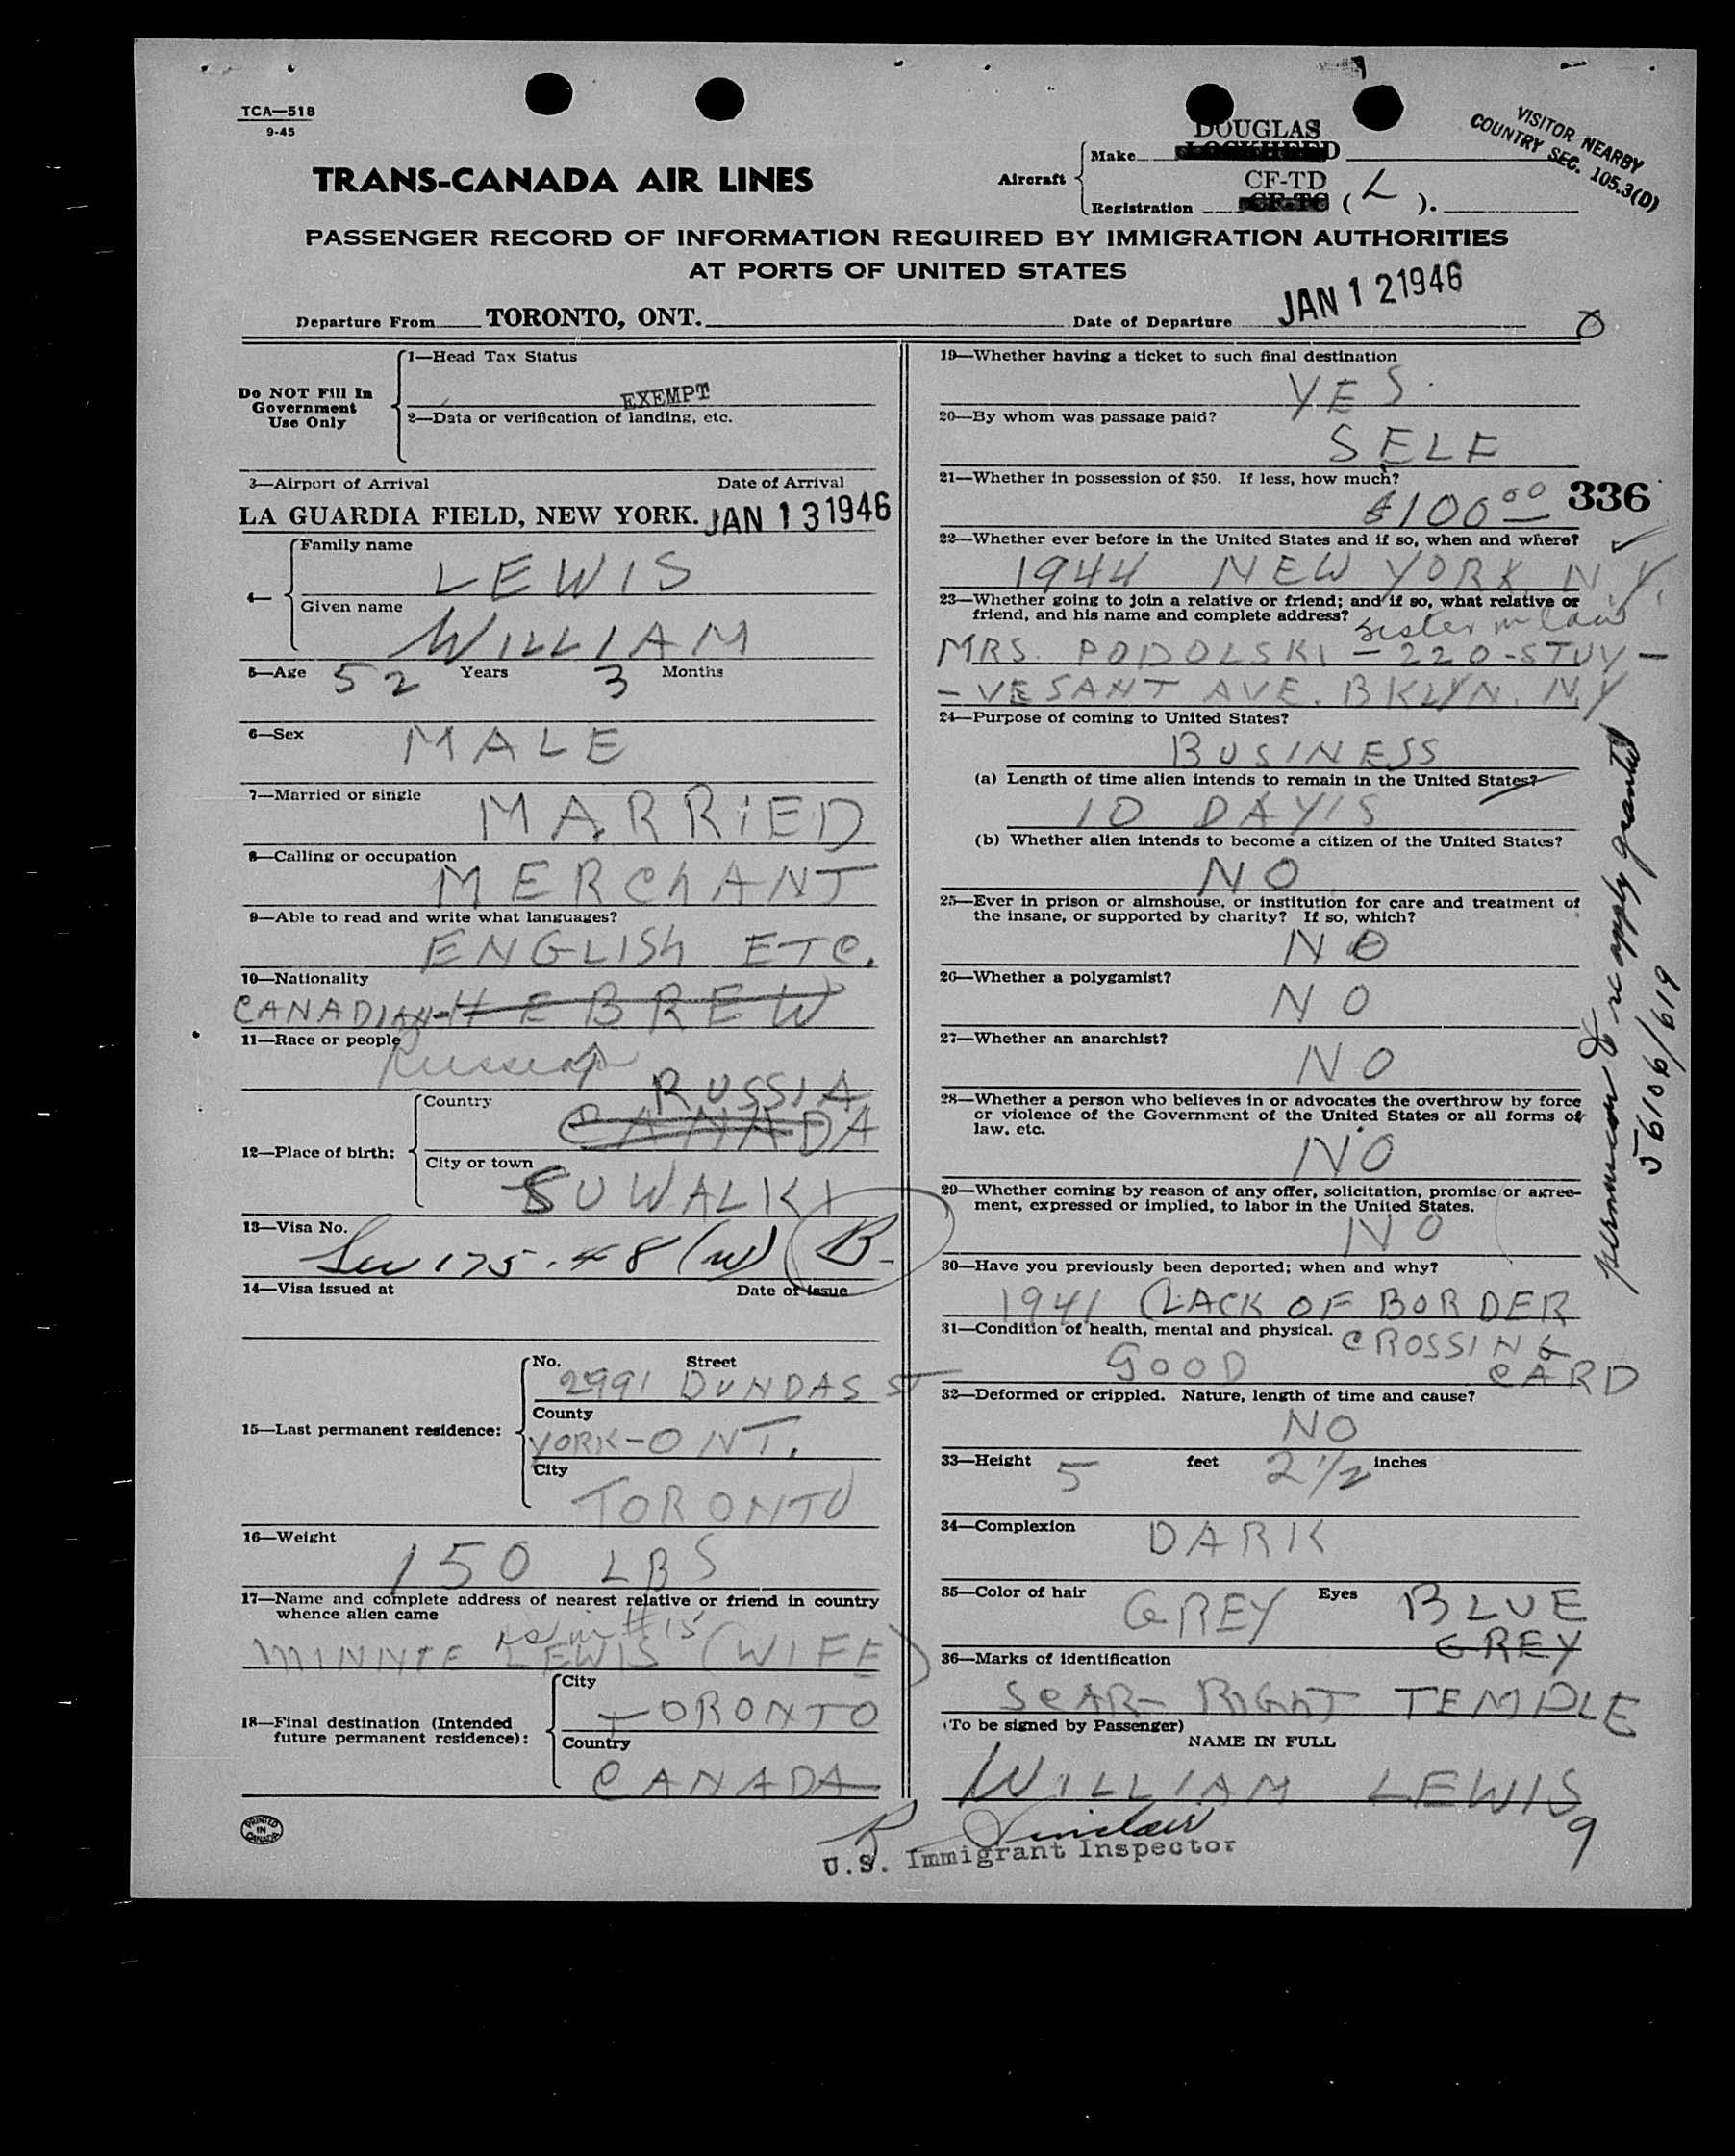 TCA—518
9-45
TRANS-CANADA AIR LINES
Aircraft
Make
DOUGLAS
LOCKHEED
Registration
CF-TD
CF-TC ( L ).
VISITOR NEARBY
COUNTRY SEC. 105.3(D)
PASSENGER RECORD OF INFORMATION REQUIRED BY IMMIGRATION AUTHORITIES
AT PORTS OF UNITED STATES
Departure From TORONTO, ONT. Date of Departure JAN 12 1946
Do NOT Fill In
Government
Use Only
1—Head Tax Status
EXEMPT
2—Data or verification of landing, etc.
3—Airport of Arrival Date of Arrival
LA GUARDIA FIELD, NEW YORK. JAN 13 1946
4—
Family name
LEWIS
Given name
WILLIAM
5—Age 52 Years 3 Months
6—Sex
MALE
7—Married or single
MARRIED
8—Calling or occupation
MERChANT
9—Able to read and write what languages?
ENGLISh ETC.
10—Nationality
CANADIAN-HEBREW
11—Race or people
Russian
12—Place of birth:
Country
RUSSIA
CANADA
City or town
SUWALKI
13—Visa No.
Sec 175.48 (w) B-
14—Visa issued at Date of issue
15—Last permanent residence:
No. Street
2991 DUNDAS ST
County
YORK-ONT.
City
TORONTO
16—Weight
150 LBS
17—Name and complete address of nearest relative or friend in country
whence alien came
as in #15
MINNIE LEWIS (WIFE)
18—Final destination (Intended
future permanent residence):
City
TORONTO
Country
CANADA
PRINTED
IN
CANADA
19—Whether having a ticket to such final destination
YES.
20—By whom was passage paid?
SELF
21—Whether in possession of $50. If less, how much?
$100 00
336
22—Whether ever before in the United States and if so, when and where?
1944 NEW YORK, N.Y.
23—Whether going to join a relative or friend; and if so, what relative or
friend, and his name and complete address?
sister in law
MRS. PODOLSKI - 220-STUY-
-VESANT AVE. BKLYN. N.Y
24—Purpose of coming to United States?
BUSINESS
(a) Length of time alien intends to remain in the United States?
10 DAYS
(b) Whether alien intends to become a citizen of the United States?
NO
25—Ever in prison or almshouse, or institution for care and treatment of
the insane, or supported by charity? If so, which?
NO
26—Whether a polygamist?
NO
27—Whether an anarchist?
NO
28—Whether a person who believes in or advocates the overthrow by force
or violence of the Government of the United States or all forms of
law, etc.
NO
29—Whether coming by reason of any offer, solicitation, promise or agree-
ment, expressed or implied, to labor in the United States.
NO
30—Have you previously been deported; when and why?
1941 (LACK OF BORDER
CROSSING
CARD
31—Condition of health, mental and physical.
GOOD
32—Deformed or crippled. Nature, length of time and cause?
NO
33—Height 5 feet 2 1/2 inches
34—Complexion
DARK
35—Color of hair GREY Eyes BLUE
GREY
36—Marks of identification
SCAR- RIGhT TEMPLE
(To be signed by Passenger)
NAME IN FULL
WILLIAM LEWIS
9
Sinclair
U.S. Immigrant Inspector
permission to reapply granted
56106/619